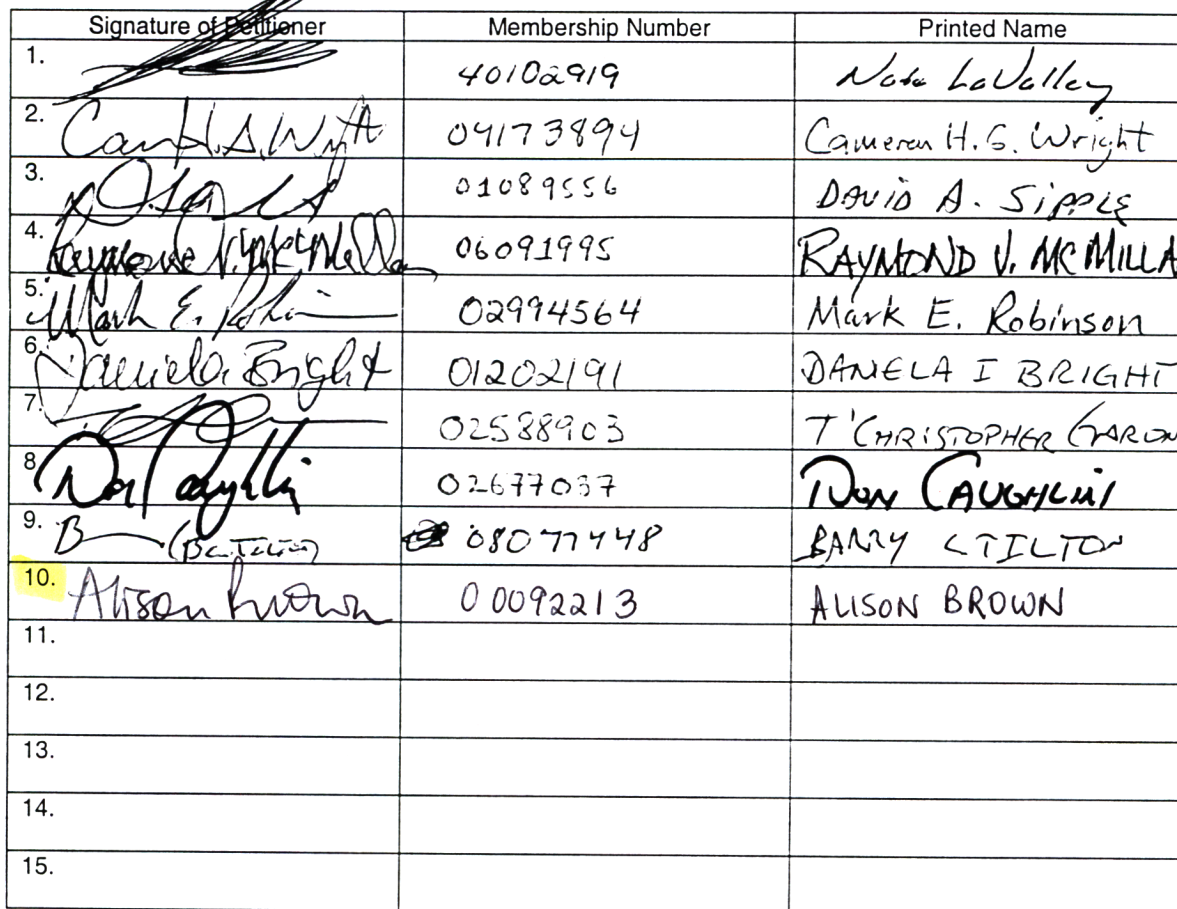 Signature of Petitioner Membership Number Printed Name
1. 40102919 Nate LaValley
2. Cam H.S. Wright 04173894 Cameron H. S. Wright
3. 01089556 DAVID A. SIPPLE
4. Raymond V. McMillan 06091995 RAYMOND V. MCMILLA
5. Mark E. Robin 02994564 Mark E. Robinson
6. Daniela Bright 01202191 DANIELA I BRIGHT
7. 02588903 T'CHRISTOPHER GARON
8 Don Caughlin 02677037 DON CAUGHLIN
9. B 08077448 BARRY C TILTON
10. Alison Brown 00092213 ALISON BROWN
11.
12.
13.
14.
15.